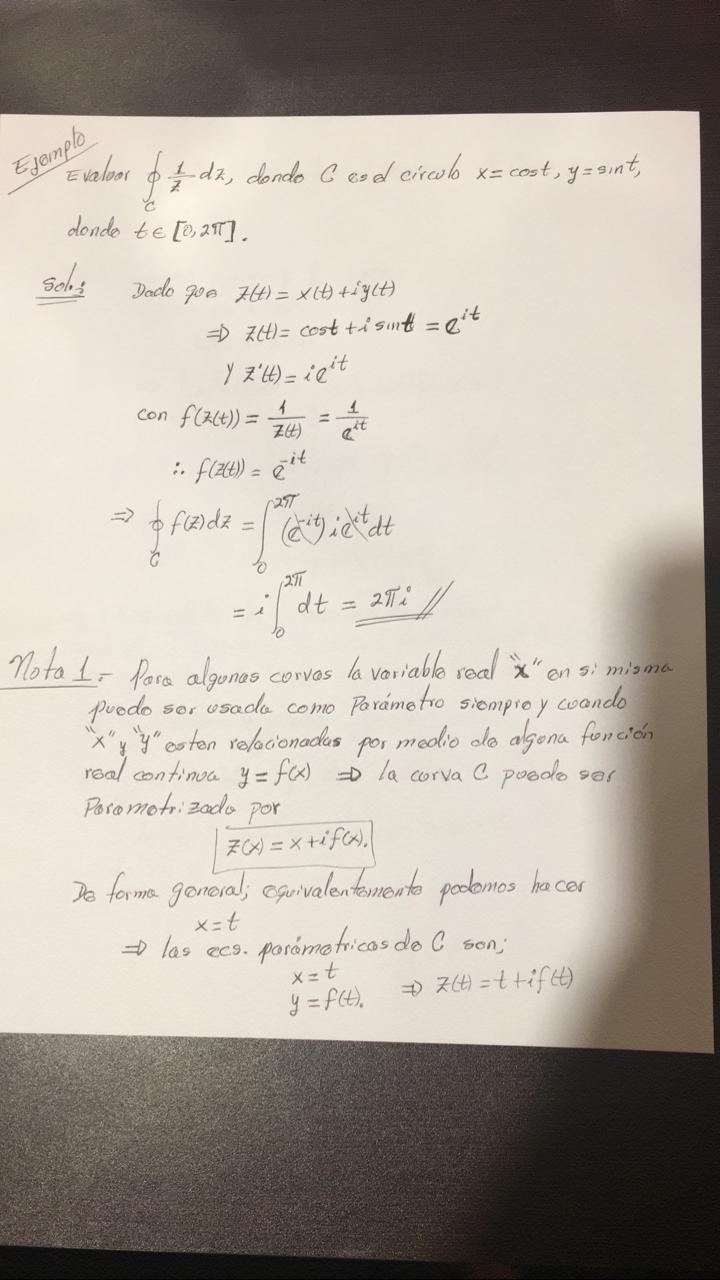 Ejemplo
Evaluar ∮_C 1/z dz, donde C es el círculo x = cost, y = sint,
donde t ∈ [0, 2π].
Sol.: Dado que z(t) = x(t) + iy(t)
⇒ z(t) = cost + i sint = e^{it}
y z'(t) = ie^{it}
con f(z(t)) = 1/z(t) = 1/e^{it}
∴ f(z(t)) = e^{-it}
⇒ ∮_C f(z)dz = ∫_0^{2π} (e^{-it}) ie^{it} dt
= i ∫_0^{2π} dt = 2πi //
Nota 1.- Para algunas curvas la variable real "x" en si misma
puede ser usada como Parámetro siempre y cuando
"x" y "y" esten relacionadas por medio de alguna función
real continua y = f(x) ⇒ la curva C puede ser
Parametrizada por
z(x) = x + if(x).
De forma general; equivalentemente podemos hacer
x = t
⇒ las ecs. parámetricas de C son;
x = t
y = f(t). ⇒ z(t) = t + if(t)